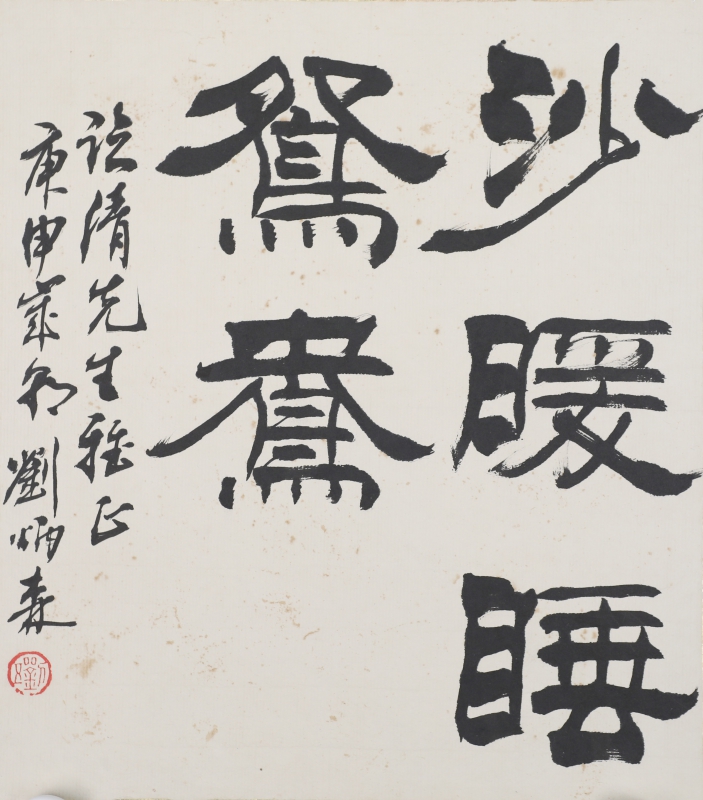 沙暖睡
鴛鴦
清先生雅正
庚申歲初 劉炳森